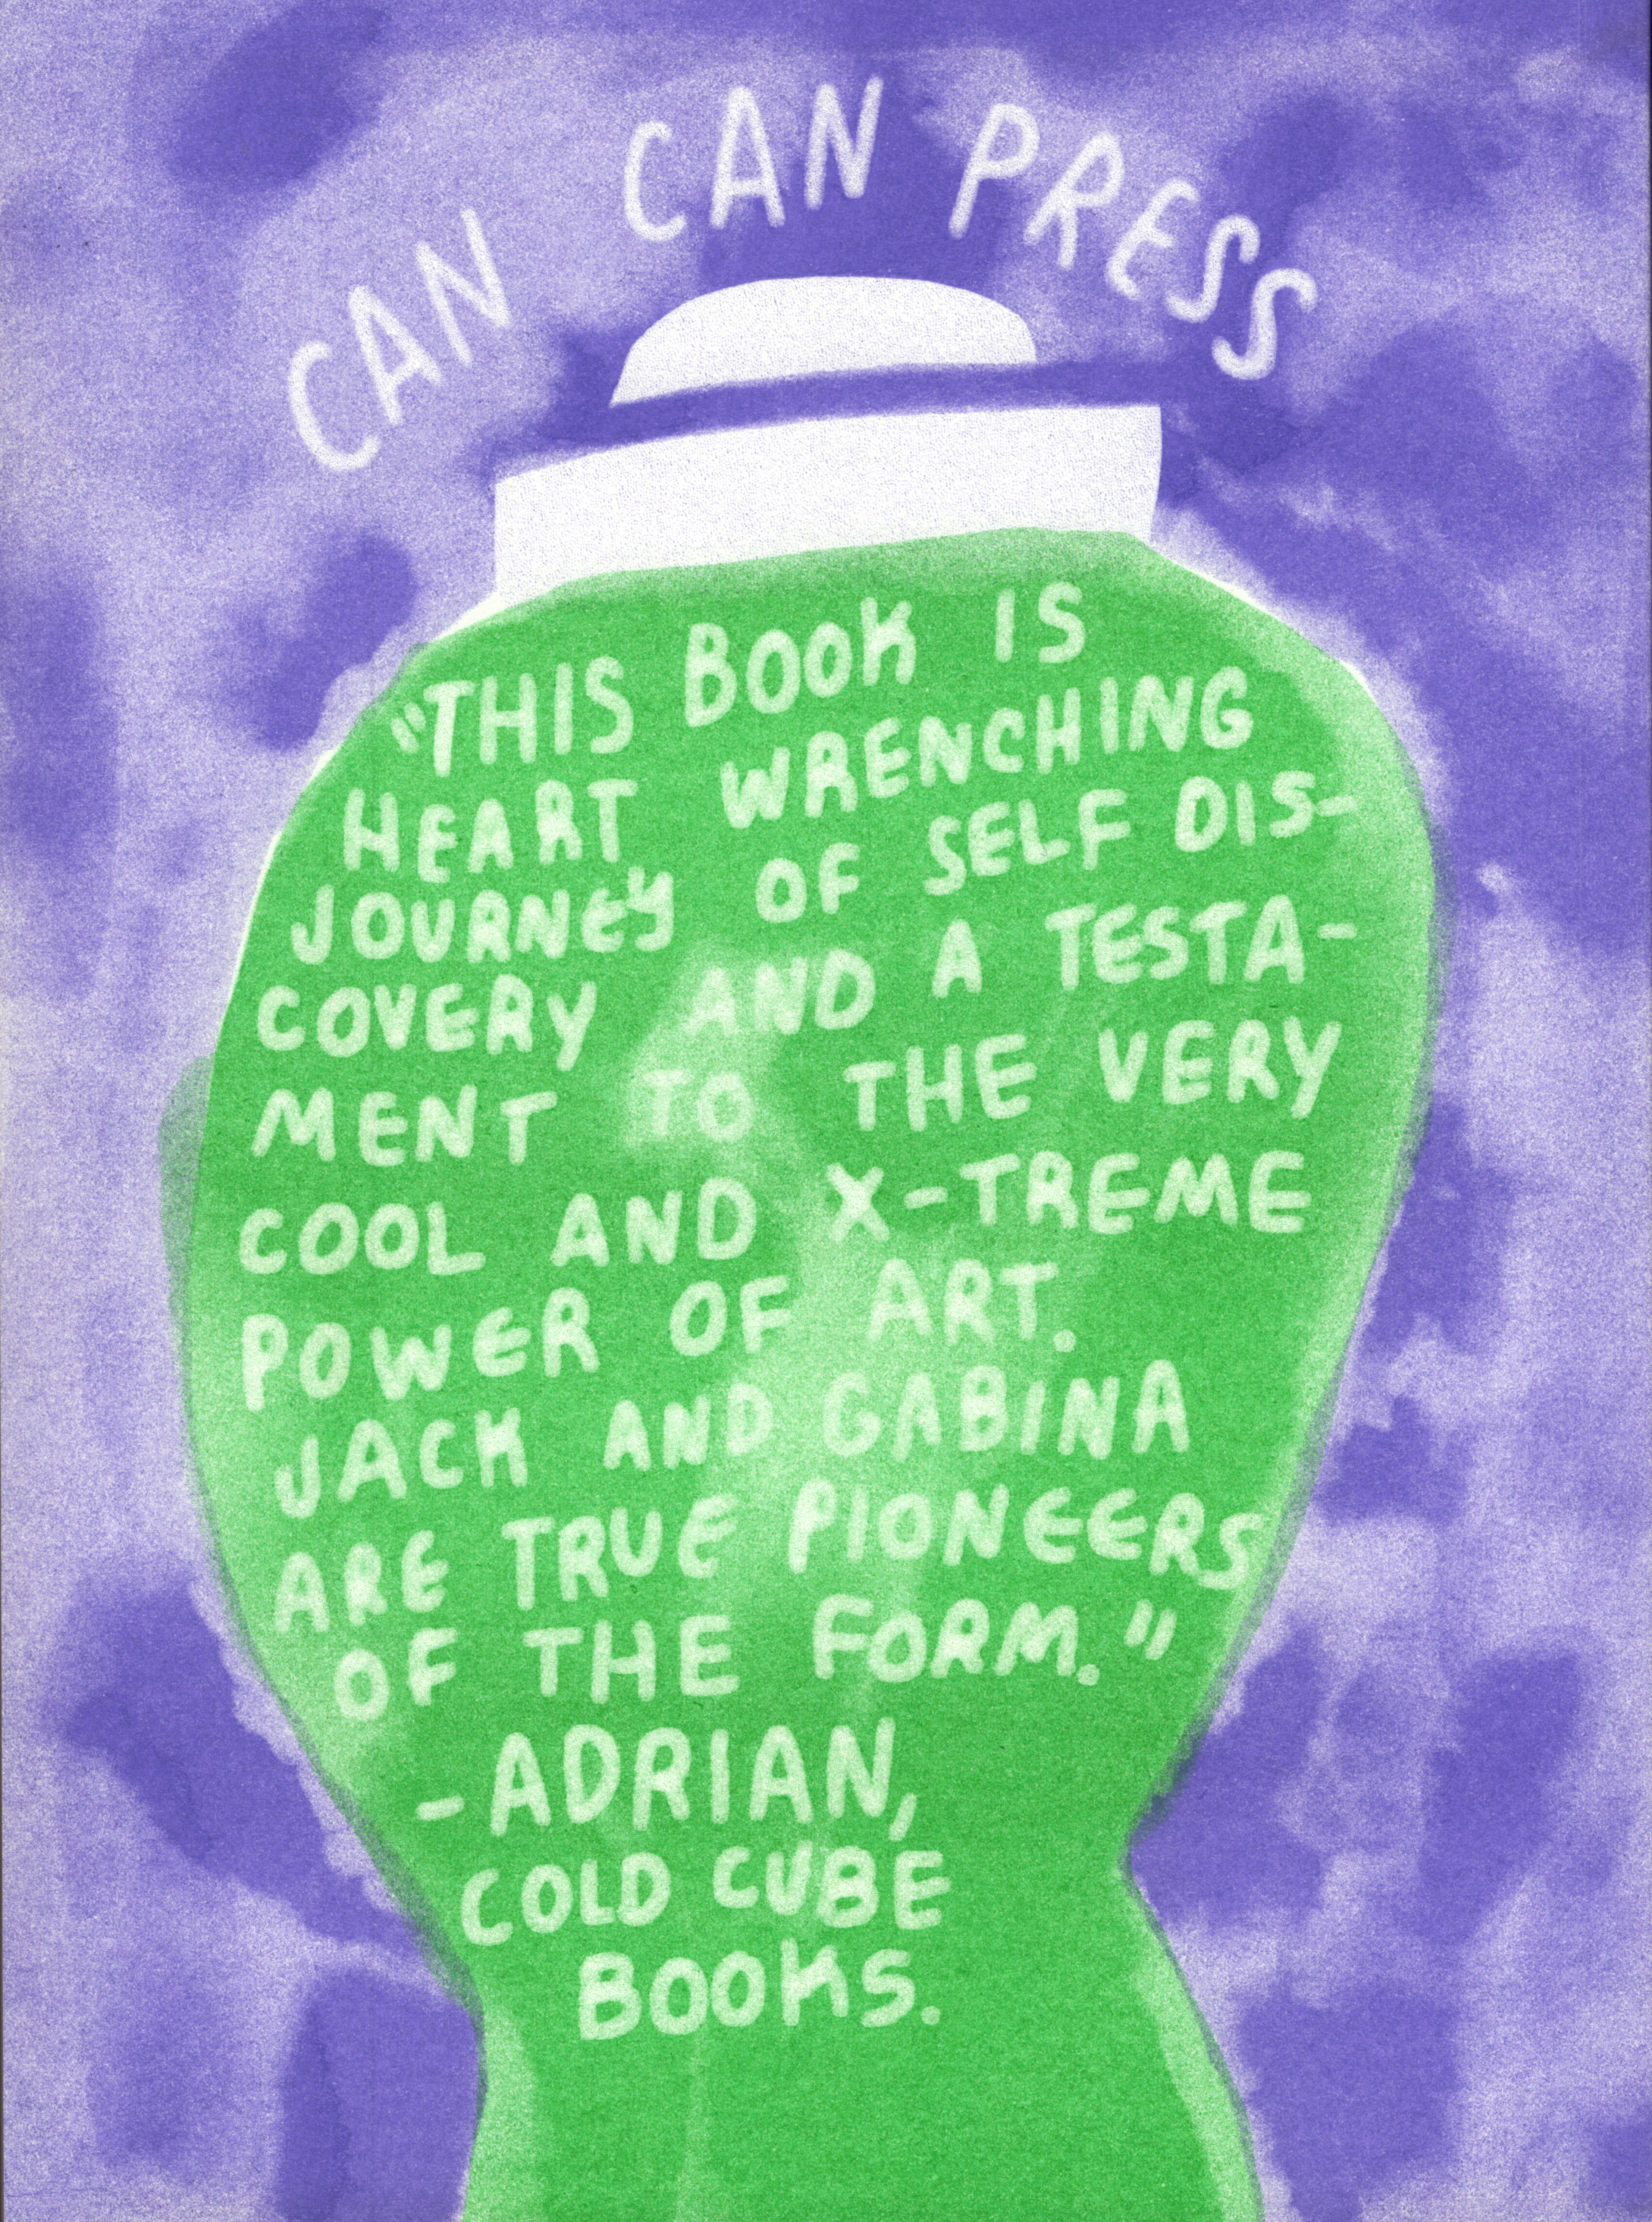 CAN CAN PRESS
"THIS BOOK IS
HEART WRENCHING
JOURNEY OF SELF DIS-
COVERY AND A TESTA-
MENT TO THE VERY
COOL AND X-TREME
POWER OF ART.
JACK AND GABINA
ARE TRUE PIONEERS
OF THE FORM."
-ADRIAN,
COLD CUBE
BOOKS.